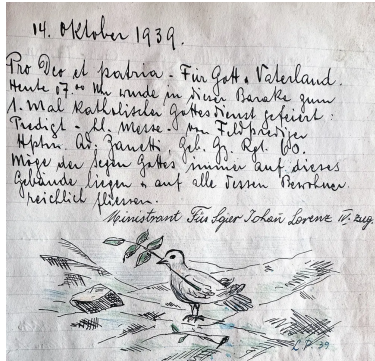 14. Oktober 1939.
Pro Deo et patria - Für Gott + Vaterland.
Heute 17.00 Uhr wurde in dieser Barake zum
1. Mal katholischer Gottesdienst gefeiert:
Predigt - hl. Messe. von Feldprediger
Hptm. Ad. Zanetti, Geb. Gz. Rgt. 60.
Möge der Segen Gottes immer auf dieses
Gebäude liegen + auf alle dessen Bewohner
reichlich fliessen.
Ministrant Füs Johañ Lorenz IV. Zug.
39